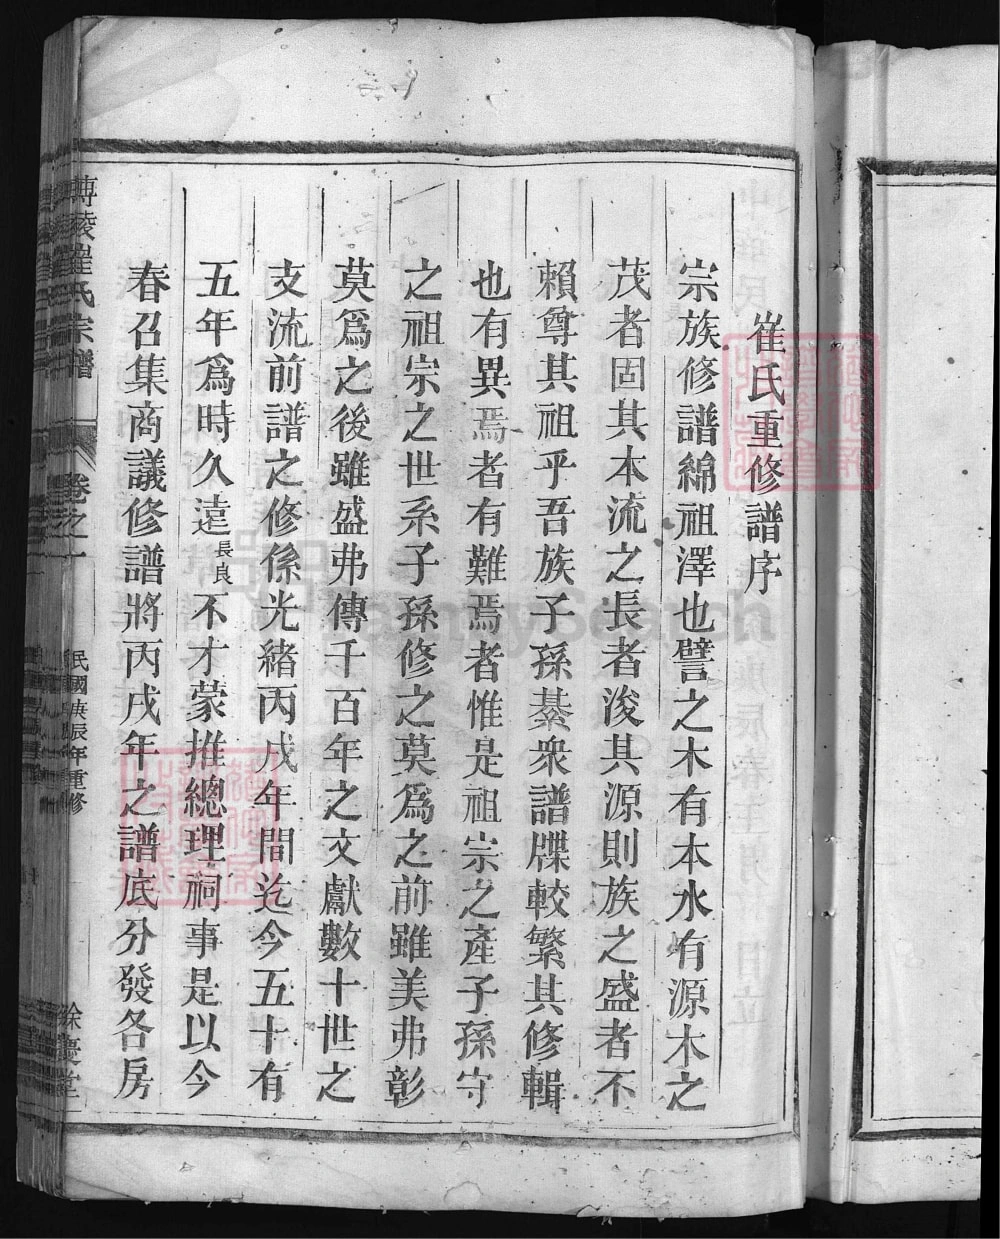 崔氏重修譜序
宗族修譜綿祖澤也譬之木有本水有源木之
茂者固其本流之長者浚其源則族之盛者不
賴尊其祖乎吾族子孫綦衆譜牒較繁其修輯
也有異焉者有難焉者惟是祖宗之產子孫守
之祖宗之世系子孫修之莫爲之前雖美弗彰
莫爲之後雖盛弗傳千百年之文獻數十世之
支流前譜之修係光緒丙戌年間迄今五十有
五年爲時久遠長良不才蒙推總理祠事是以今
春召集商議修譜將丙戌年之譜底分發各房
博陵崔氏宗譜 卷之一 民國庚辰年重修 餘慶堂
FamilySearch